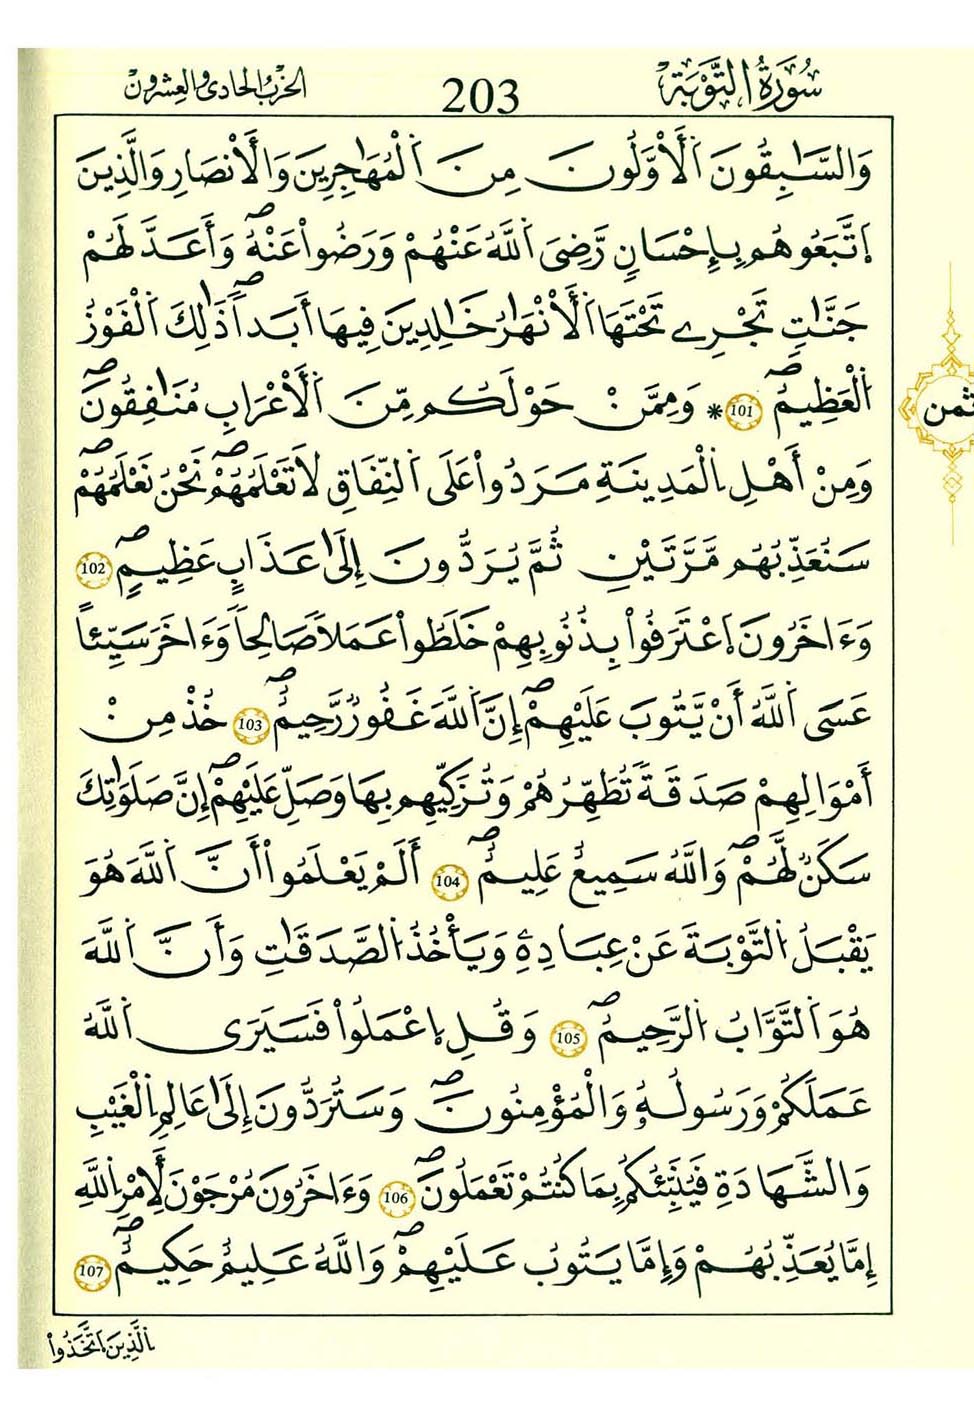 سُورَةُ التَّوْبَةِ 203 الحزب الحادي والعشرون
وَالسَّٰبِقُونَ اَ۬لْأَوَّلُونَ مِنَ اَ۬لْمُهَٰجِرِينَ وَالْأَنصَارِ وَالَّذِينَ
اَ۪تَّبَعُوهُم بِإِحْسَٰنٖ رَّضِيَ اَ۬للَّهُ عَنْهُمْ وَرَضُواْ عَنْهُۖ وَأَعَدَّ لَهُمْ
جَنَّٰتٖ تَجْرِے تَحْتَهَا اَ۬لْأَنْهَٰرُ خَٰلِدِينَ فِيهَا أَبَداٗۖ ذَٰلِكَ اَ۬لْفَوْزُ
اُ۬لْعَظِيمُۖ 101 * وَمِمَّنْ حَوْلَكُم مِّنَ اَ۬لْأَعْرَابِ مُنَٰفِقُونَۖ
وَمِنْ أَهْلِ اِ۬لْمَدِينَةِ مَرَدُواْ عَلَى اَ۬لنِّفَاقِ لَا تَعْلَمُهُمْۖ نَحْنُ نَعْلَمُهُمْۖ
سَنُعَذِّبُهُم مَّرَّتَيْنِ ثُمَّ يُرَدُّونَ إِلَىٰ عَذَابٍ عَظِيمٖۖ 102
وَءَاخَرُونَ اَ۪عْتَرَفُواْ بِذُنُوبِهِمْ خَلَطُواْ عَمَلاٗ صَٰلِحاٗ وَءَاخَرَ سَيِّئاً
عَسَى اَ۬للَّهُ أَنْ يَّتُوبَ عَلَيْهِمْۖ إِنَّ اَ۬للَّهَ غَفُورٞ رَّحِيمٞۖ 103 خُذْ مِنْ
أَمْوَٰلِهِمْ صَدَقَةٗ تُطَهِّرُهُمْ وَتُزَكِّيهِم بِهَا وَصَلِّ عَلَيْهِمْۖ إِنَّ صَلَوَٰتِكَ
سَكَنٞ لَّهُمْۖ وَاللَّهُ سَمِيعٌ عَلِيمٌۖ 104 أَلَمْ يَعْلَمُواْ أَنَّ اَ۬للَّهَ هُوَ
يَقْبَلُ اُ۬لتَّوْبَةَ عَنْ عِبَادِهِۦ وَيَأْخُذُ اُ۬لصَّدَقَٰتِ وَأَنَّ اَ۬للَّهَ
هُوَ اَ۬لتَّوَّابُ اُ۬لرَّحِيمُۖ 105 وَقُلِ اِ۪عْمَلُواْ فَسَيَرَى اَ۬للَّهُ
عَمَلَكُمْ وَرَسُولُهُۥ وَالْمُؤْمِنُونَۖ وَسَتُرَدُّونَ إِلَىٰ عَٰلِمِ اِ۬لْغَيْبِ
وَالشَّهَٰدَةِ فَيُنَبِّئُكُم بِمَا كُنتُمْ تَعْمَلُونَۖ 106 وَءَاخَرُونَ مُرْجَوْنَ لِأَمْرِ اِ۬للَّهِ
إِمَّا يُعَذِّبُهُمْ وَإِمَّا يَتُوبُ عَلَيْهِمْۖ وَاللَّهُ عَلِيمٌ حَكِيمٌۖ 107
اِ۬لَّذِينَ اَ۪تَّخَذُواْ
ثمن